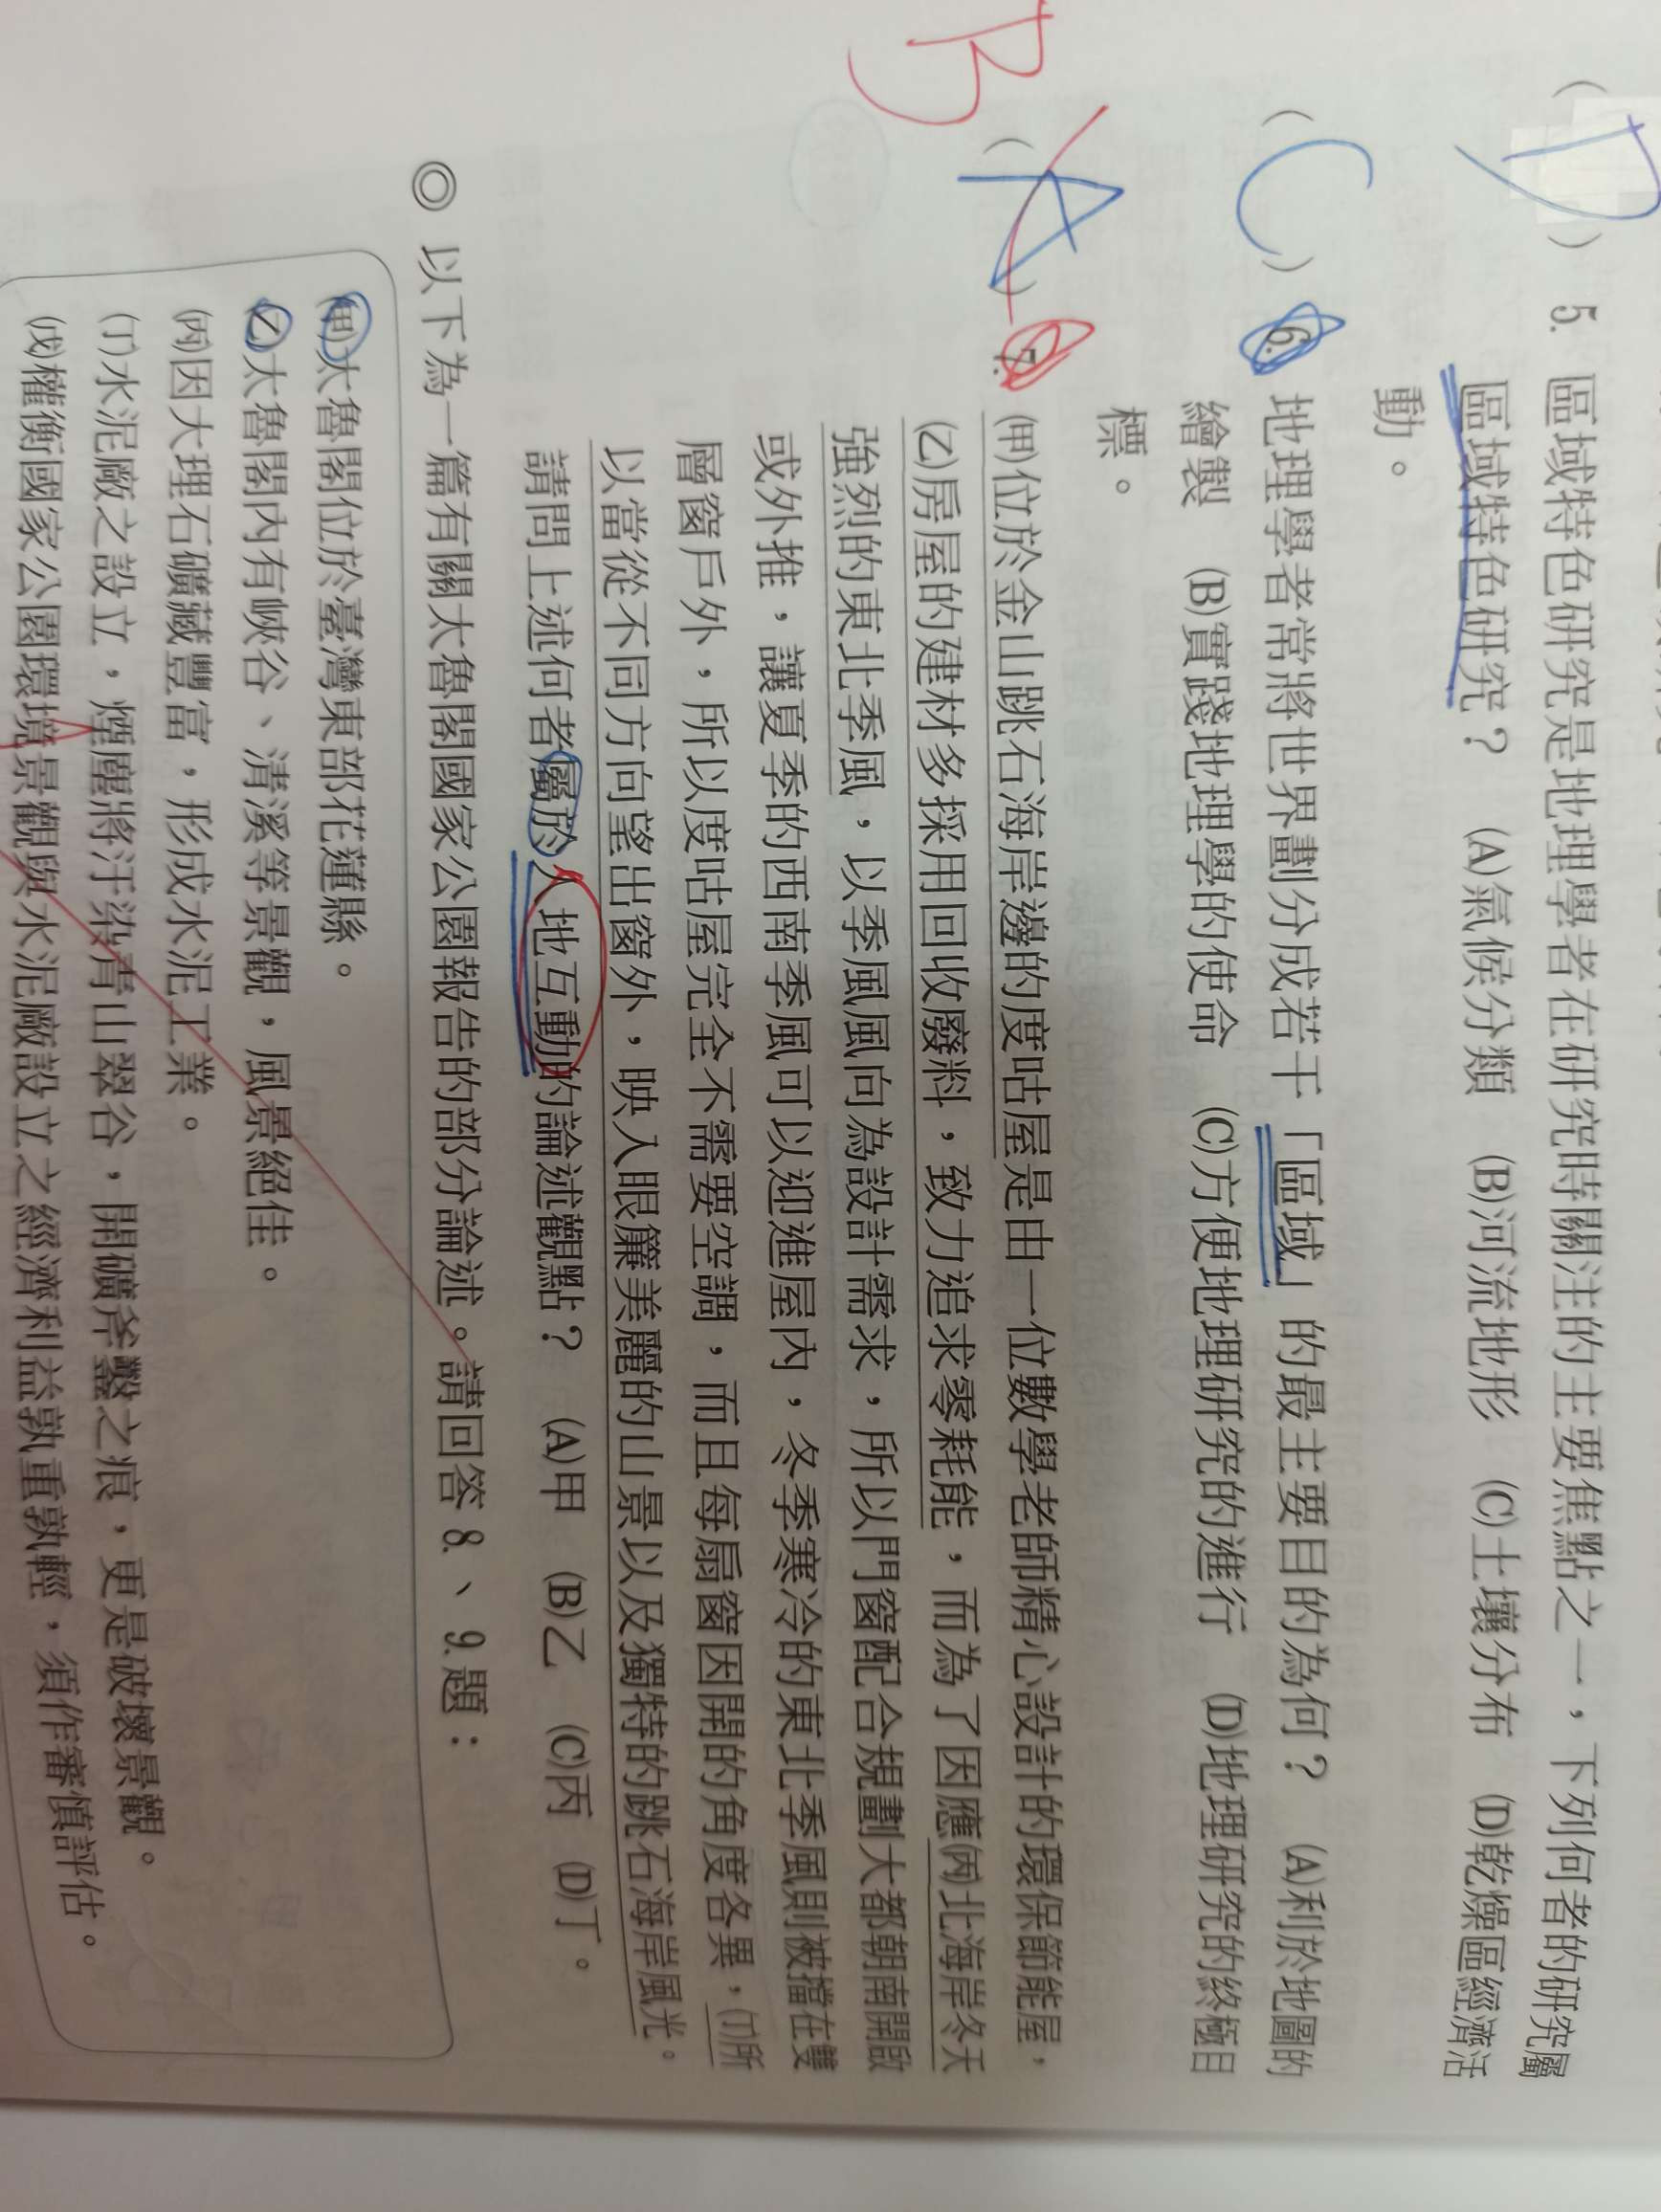 ( D ) 5. 區域特色研究是地理學者在研究時關注的主要焦點之一，下列何者的研究屬
區域特色研究？ (A)氣候分類 (B)河流地形 (C)土壤分布 (D)乾燥區經濟活
動。
( C ) 6. 地理學者常將世界劃分成若干「區域」的最主要目的為何？ (A)利於地圖的
繪製 (B)實踐地理學的使命 (C)方便地理研究的進行 (D)地理研究的終極目
標。
B ( A ) 7. ㈙位於金山跳石海岸邊的度咕屋是由一位數學老師精心設計的環保節能屋，
(乙)房屋的建材多採用回收廢料，致力追求零耗能，而為了因應(丙)北海岸冬天
強烈的東北季風，以季風風向為設計需求，所以門窗配合規劃大都朝南開啟
或外推，讓夏季的西南季風可以迎進屋內，冬季寒冷的東北季風則被擋在雙
層窗戶外，所以度咕屋完全不需要空調，而且每扇窗因開的角度各異，(丁)所
以當從不同方向望出窗外，映入眼簾美麗的山景以及獨特的跳石海岸風光。
請問上述何者屬於人地互動的論述觀點？ (A)甲 (B)乙 (C)丙 (D)丁。
◎ 以下為一篇有關太魯閣國家公園報告的部分論述。請回答 8.、9.題：
(甲)太魯閣位於臺灣東部花蓮縣。
(乙)太魯閣內有峽谷、清溪等景觀，風景絕佳。
(丙)因大理石礦藏豐富，形成水泥工業。
(丁)水泥廠之設立，煙塵將汙染青山翠谷，開礦斧鑿之痕，更是破壞景觀。
(戊)權衡國家公園環境景觀與水泥廠設立之經濟利益孰重孰輕，須作審慎評估。